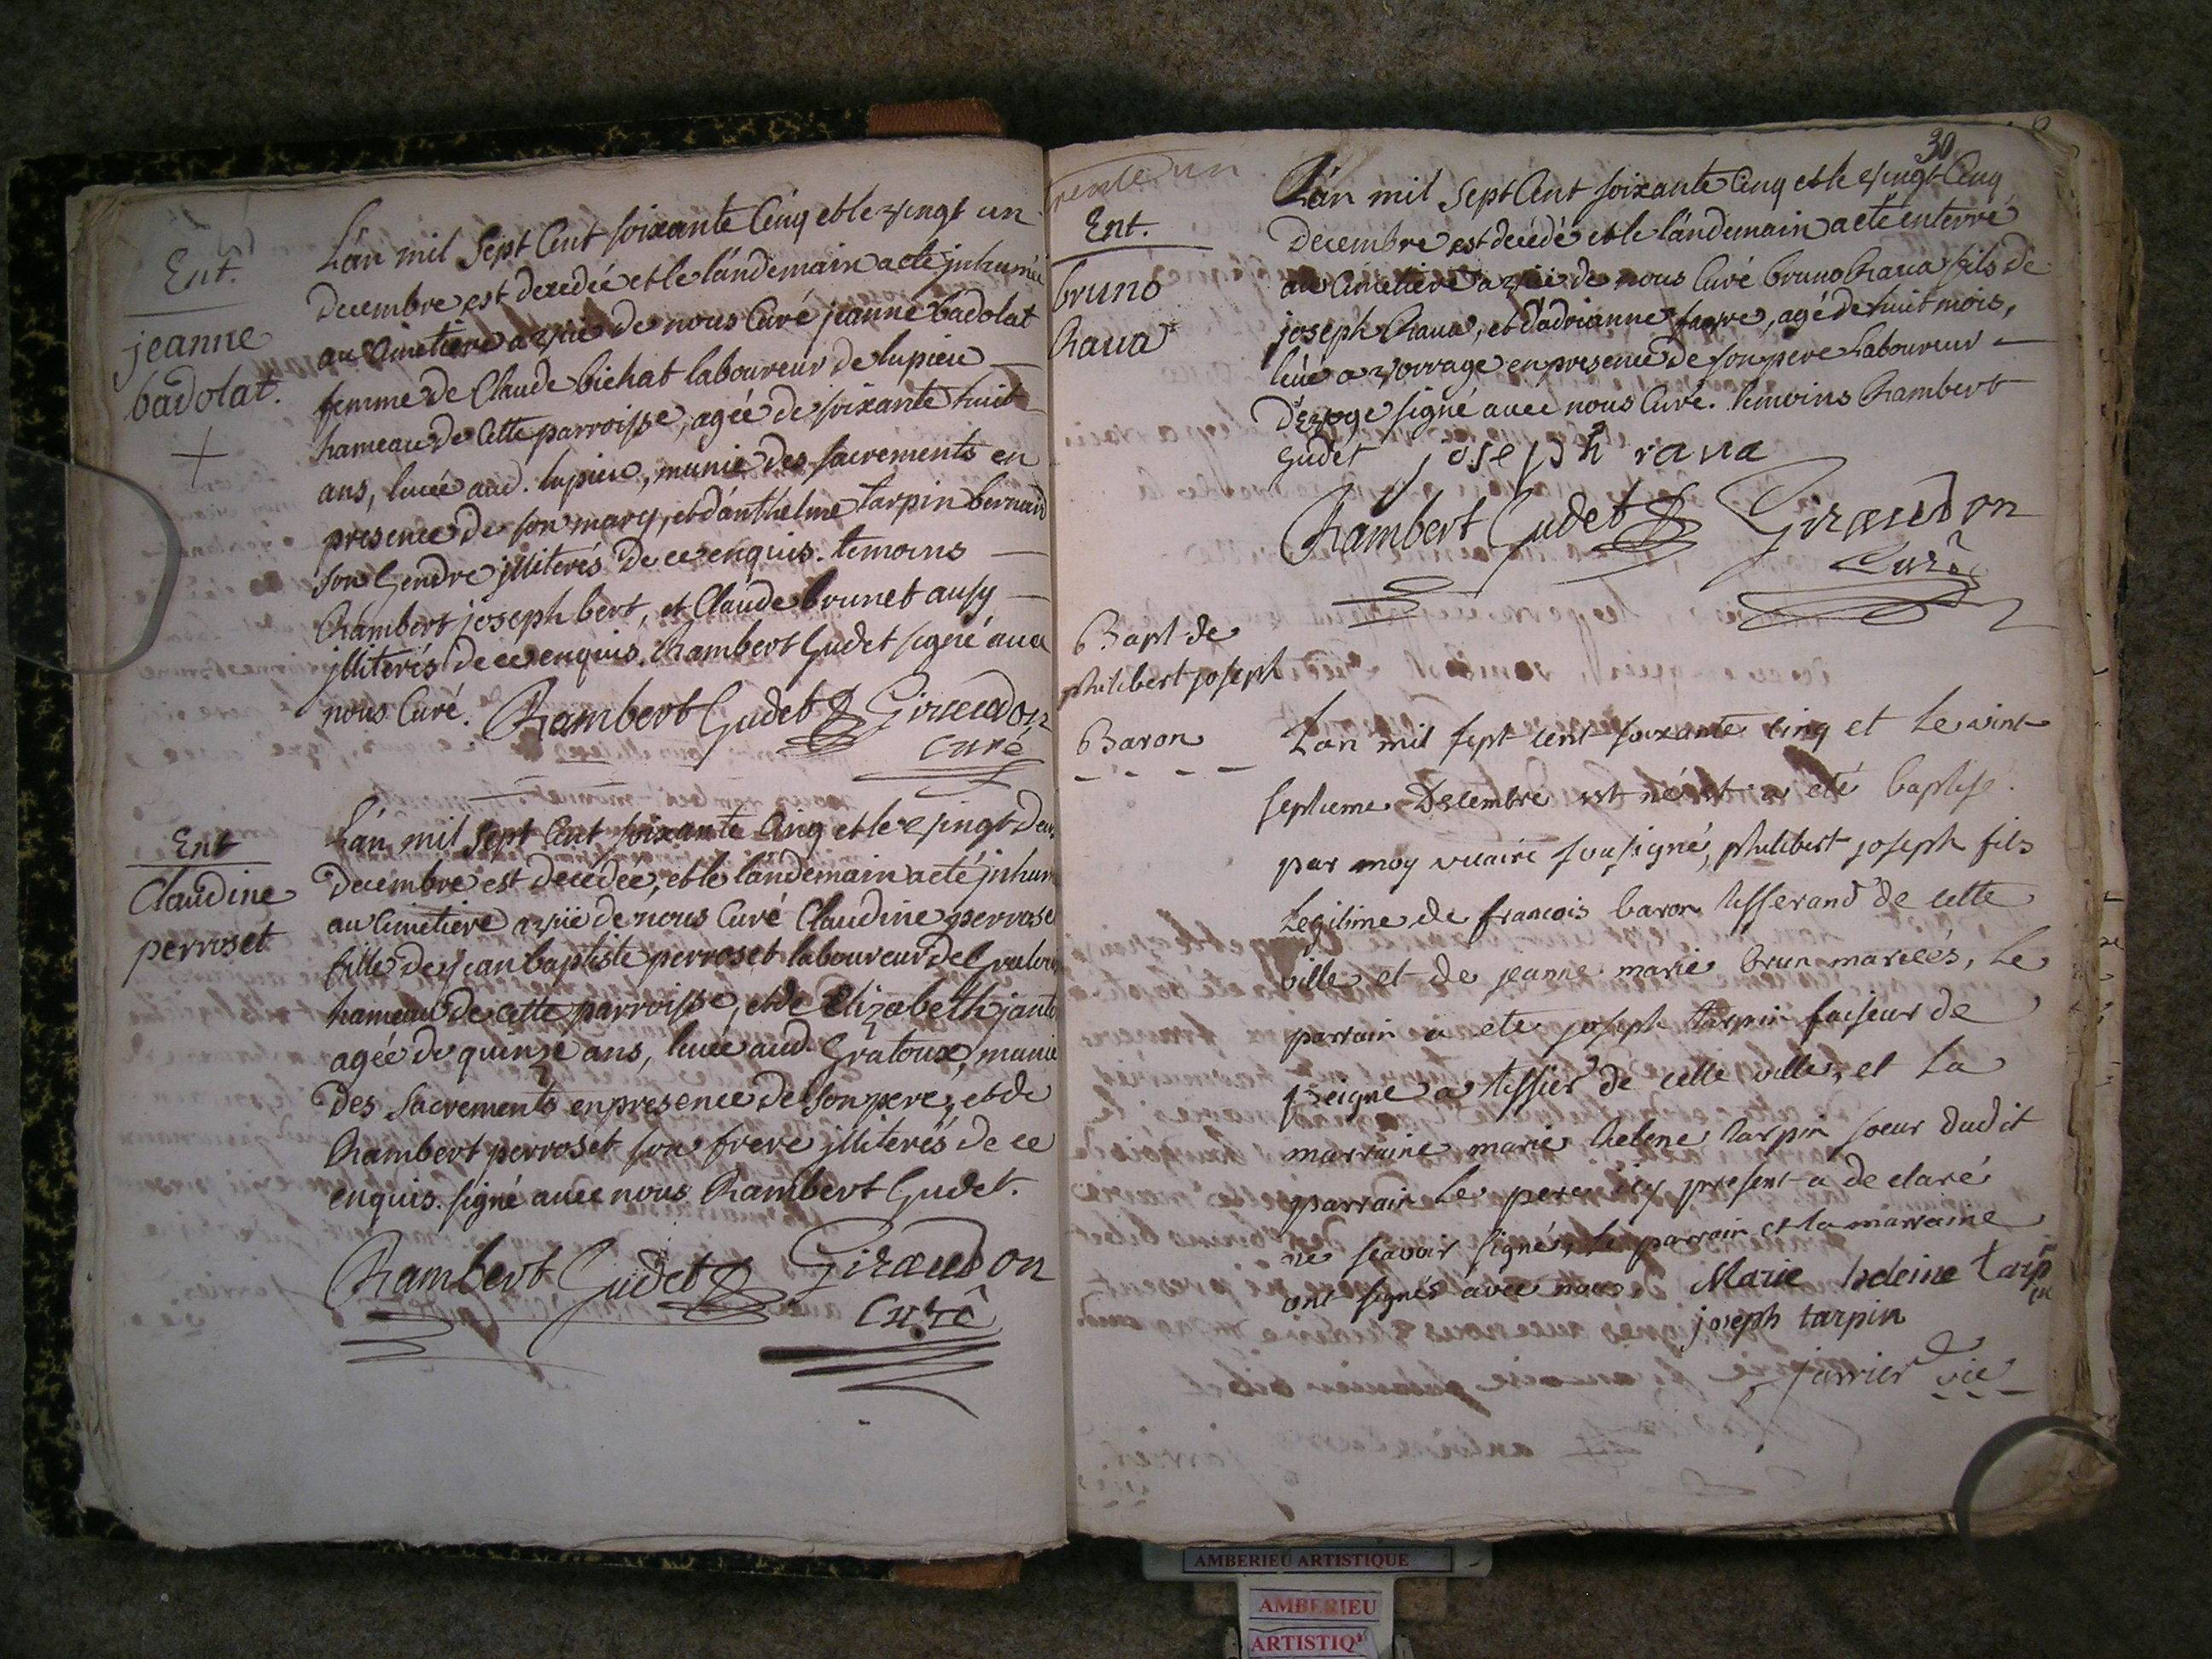 Ent.
jeanne
badolat.
L'an mil Sept Cent soixante Cinq et le vingt un
decembre est decedée et le landemain a eté inhumée
au Cimetiere a vüe de nous Curé jeanne badolat
femme de Claude bichat laboureur de lupieu
hameau de Cette parroisse, agée de soixante huit
ans, aud. lupieu, munie des sacrements en
presence de son mary, et d'anthelme tarpin bernard
son Gendre illiterés de ce enquis. temoins
Rambert joseph bert, et Claude brunet ausy
illiterés de ce enquis. Rambert Gudet signé avec
nous Curé. Rambert Gudet Giraudon
curé
Ent
Claudine
perroset
L'an mil Sept Cent soixante Cinq et le vingt deux
decembre est decedée, et le landemain a eté inhum
au Cimetiere a vüe de nous Curé Claudine perrose
fille de jean baptiste perroset laboureur de
hameau de cette parroisse, et de Elizabeth
agée de quinze ans, aud. Gratoux, munie
des sacrements en presence de son pere, et de
Rambert perroset son frere illiterés de ce
enquis. signé avec nous Rambert Gudet.
Rambert Gudet Giraudon
Curé
30
trente un
Ent.
bruno
Rava
L'an mil Sept Cent soixante Cinq et le vingt Cinq
decembre est decédé et le landemain a eté enterré
au Cimetiere a vüe de nous Curé bruno Rava fils de
joseph Rava, et d'adrianne, agé de huit mois,
en presence de son pere Laboureur
signé avec nous Curé. temoins Rambert
Gudet joseph rava
Rambert Gudet Giraudon
Curé
Bapt de
philibert joseph
Baron
L'an mil sept cent soixante cinq et le vint
septieme Decembre est né et a eté baptisé
par moy vicaire sousigné, philibert joseph fils
Legitime de francois baron tisserand de cette
ville et de jeanne marie brun mariées, Le
parrain a ete joseph tarpin faiseur de
peigne a tissier de cette ville, et La
marraine marie helene tarpin soeur dudit
parrain Le pere icy present a declaré
ne scavoir signé, Le parrain et la marraine
ont signés avec nous Marie heleine tarp
in
joseph tarpin
jarrier vic
AMBERIEU ARTISTIQUE
AMBERIEU
ARTISTIQ